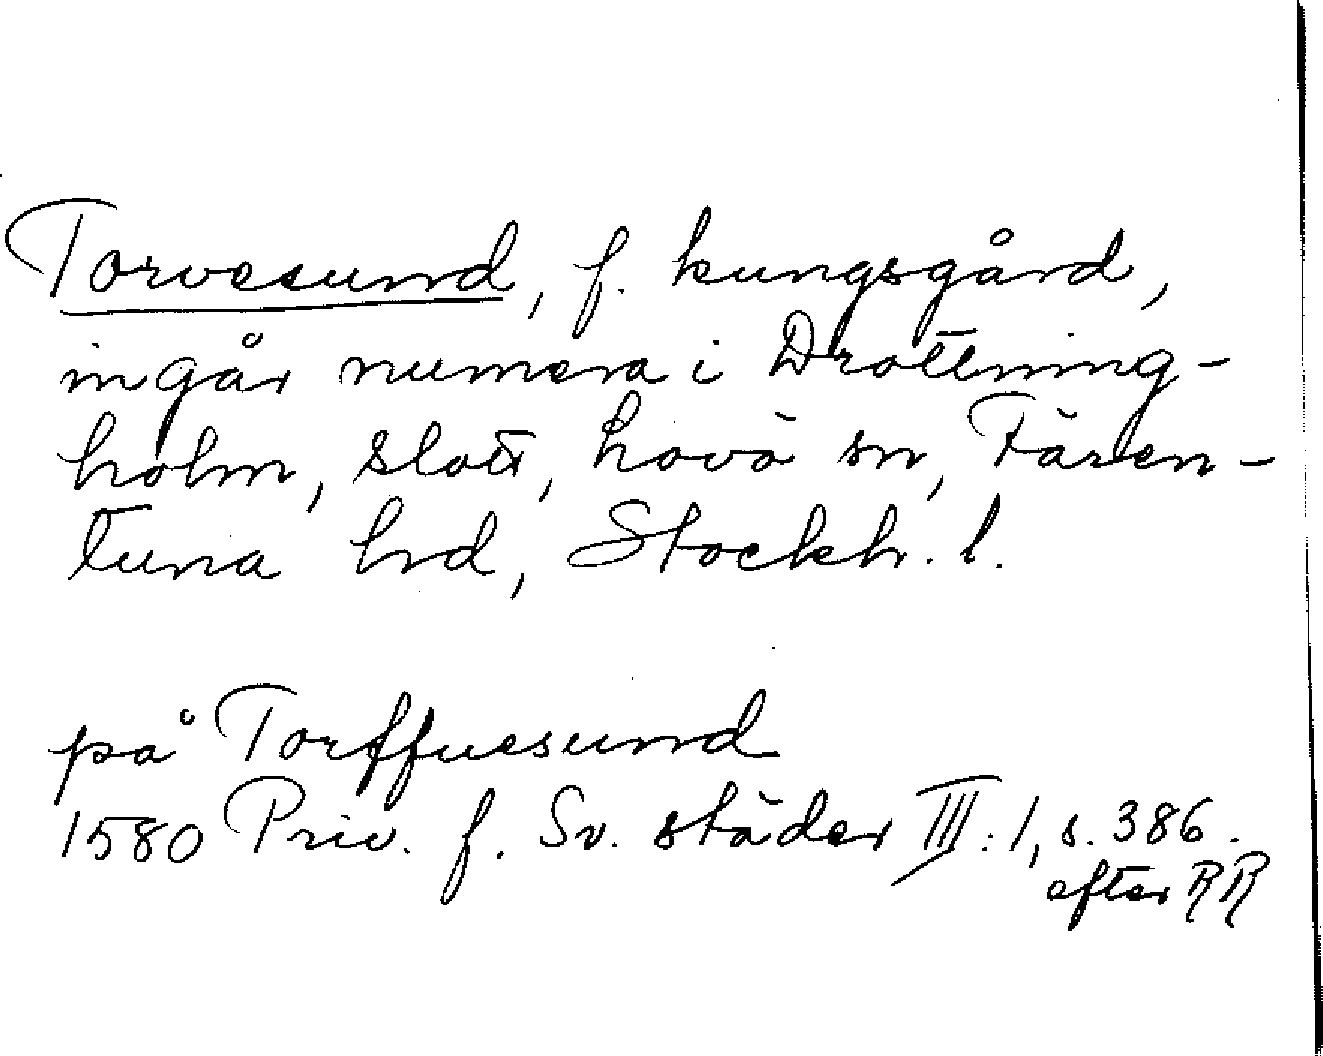 Torvesund, f. kungsgård,
ingår numera i Drottning-
holm, slott, Lovö sn, Fären-
tuna hd, Stockh. l.
på Torffuesund
1580 Priv. f. Sv. städer III: 1, s. 386.
efter RR